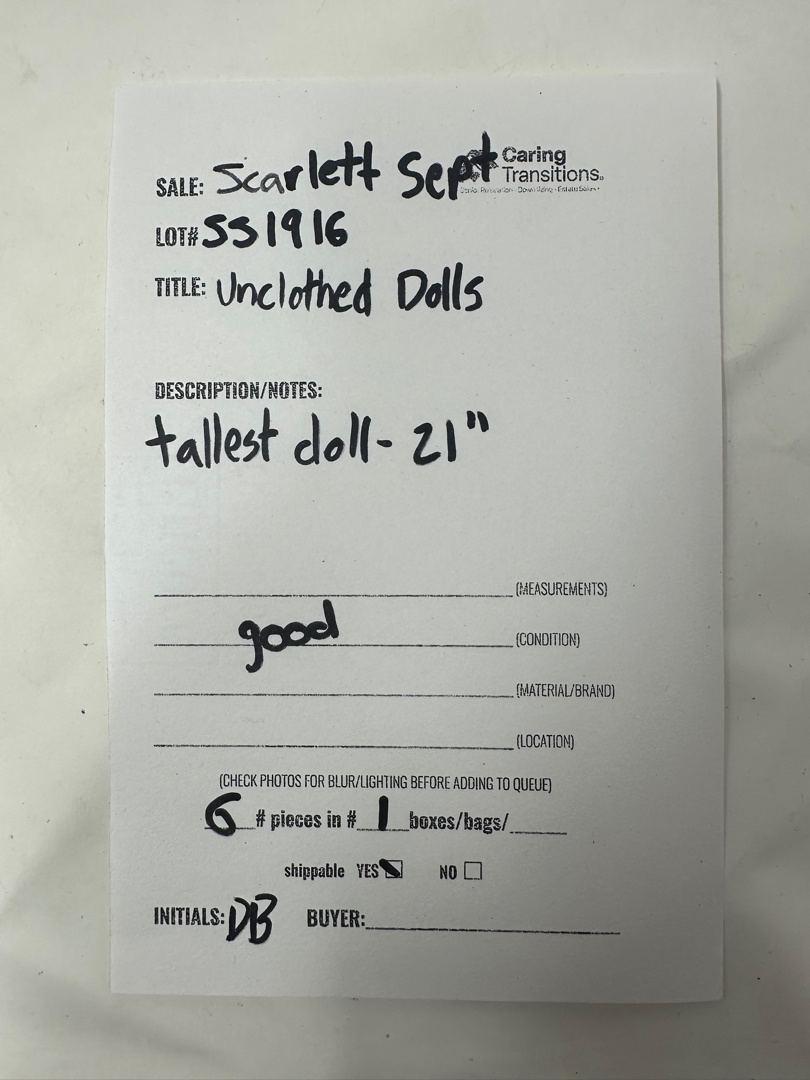 SALE: Scarlett Sept Caring
Transitions
LOT# SS1916
TITLE: Unclothed Dolls
DESCRIPTION/NOTES:
tallest doll- 21"
(MEASUREMENTS)
good (CONDITION)
(MATERIAL/BRAND)
(LOCATION)
(CHECK PHOTOS FOR BLUR/LIGHTING BEFORE ADDING TO QUEUE)
6 # pieces in # 1 boxes/bags/
shippable YES NO
INITIALS: DB BUYER: